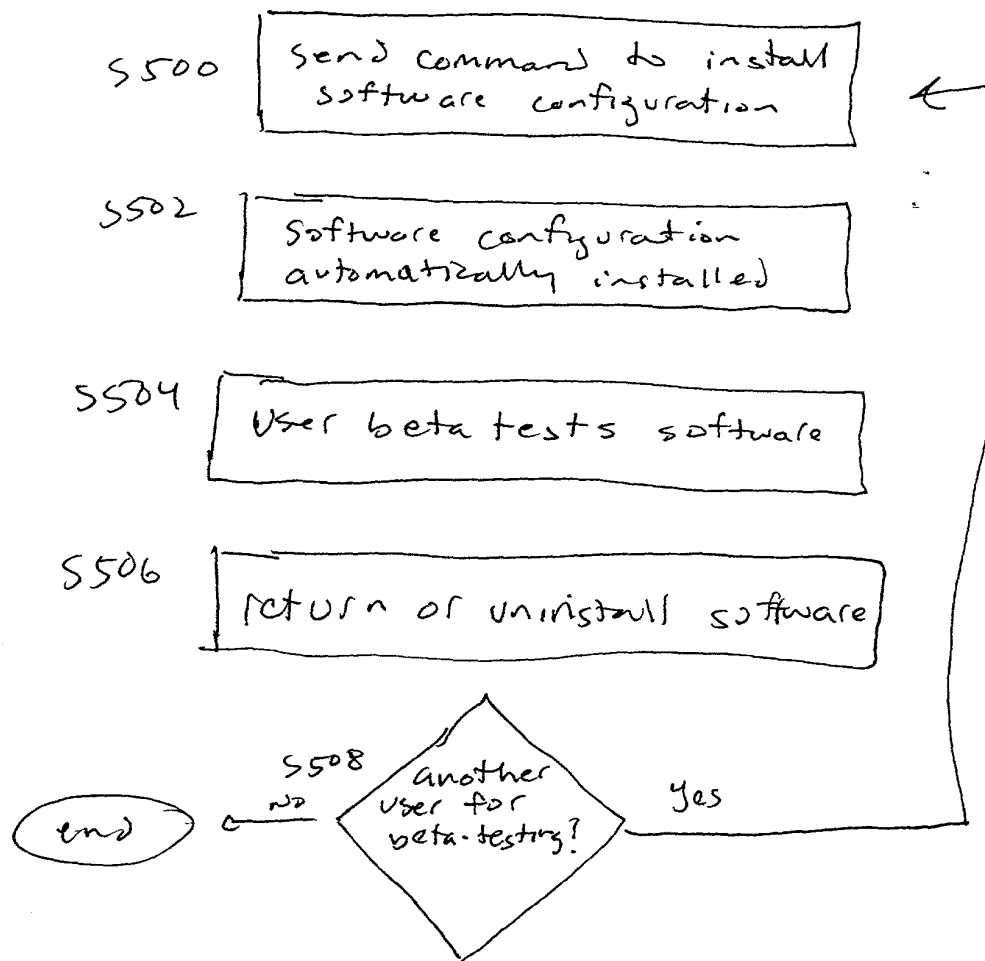 S500
send command to install
software configuration
S502
software configuration
automatically installed
S504
user beta tests software
S506
return or uninstall software
S508
another
user for
beta-testing?
No
Yes
end